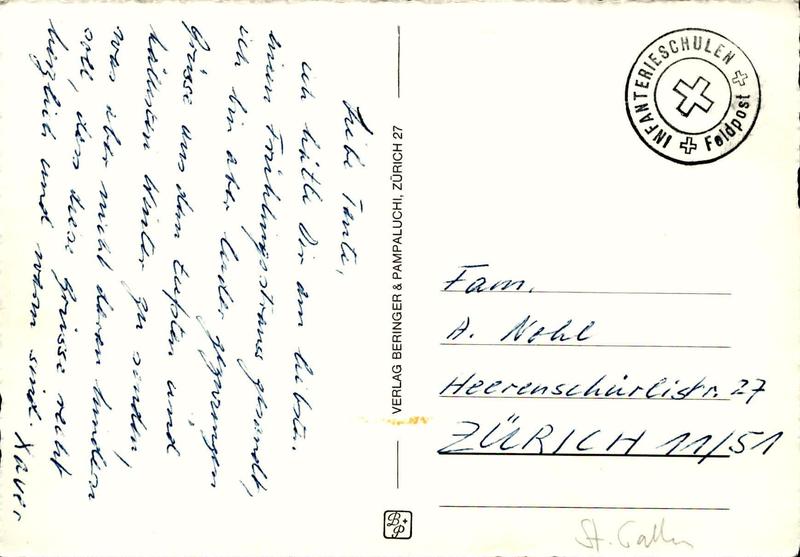 Liebe Tante,
ich hätte Dir am liebsten
einen Frühlingsstrauss gesandt,
ich bin aber leider gezwungen
Grüsse aus dem tiefsten und
kältesten Winter zu senden,
was aber nicht daran hindern
soll, dass diese Grüsse recht
herzlich und warm sind. Xaver
VERLAG BERINGER & PAMPALUCHI, ZÜRICH 27
B+P
INFANTERIESCHULEN
Feldpost
Fam.
A. Nohl
Heerenschürlistr. 27
ZÜRICH 11/51
St. Gallen